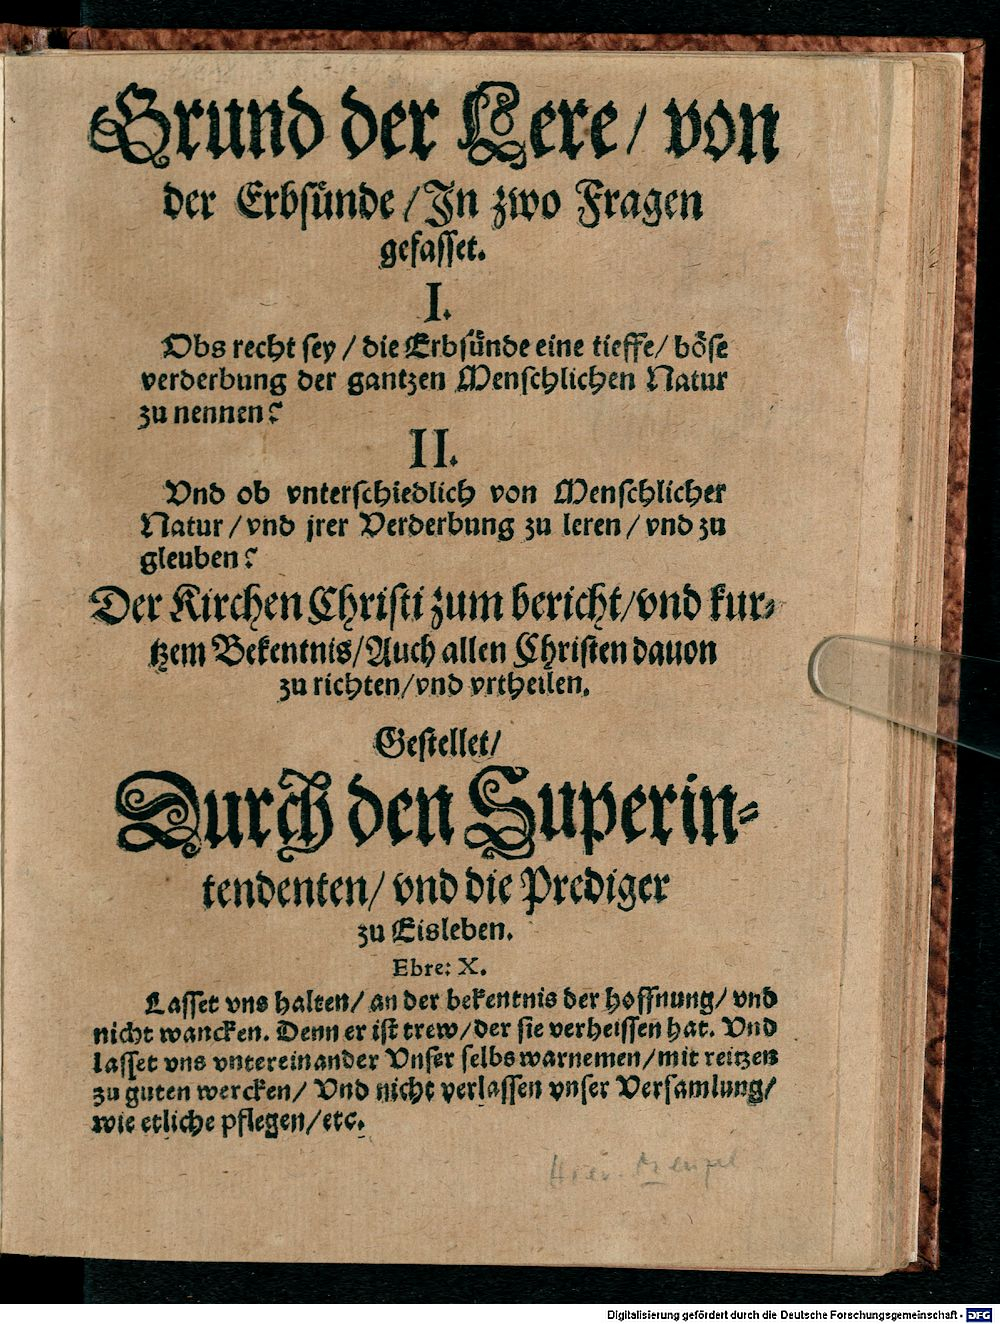 Grund der Lere/ von
der Erbsünde/ Jn zwo Fragen
gefasset.
I.
Obs recht sey/ die Erbsünde eine tieffe/ böse
verderbung der gantzen Menschlichen Natur
zu nennen?
II.
Vnd ob vnterschiedlich von Menschlicher
Natur/ vnd jrer Verderbung zu leren/ vnd zu
gleuben?
Der Kirchen Christi zum bericht/ vnd kur-
tzem Bekentnis/ Auch allen Christen dauon
zu richten/ vnd vrtheilen.
Gestellet/
Durch den Superin-
tendenten/ vnd die Prediger
zu Eisleben.
Ebre: X.
Lasset vns halten/ an der bekentnis der hoffnung/ vnd
nicht wancken. Denn er ist trew/ der sie verheissen hat. Vnd
lasset vns vntereinander Vnser selbs warnemen/ mit reitzen
zu guten wercken/ Vnd nicht verlassen vnser Versamlung/
wie etliche pflegen/ etc.
Hier. Menzel
Digitalisierung gefördert durch die Deutsche Forschungsgemeinschaft - DFG